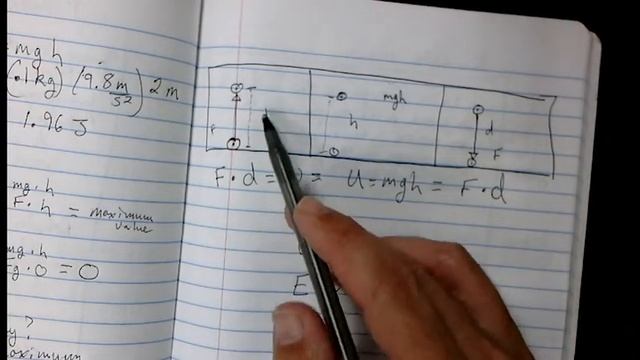 = mgh
(.1kg) (9.8 m/s²) 2m
1.96 J
mg·h
F·h = maximum value
mg·h
Fg·0 = 0
?
maximum
F
mgh
h
d
F
F·d = = U = mgh = F·d
E